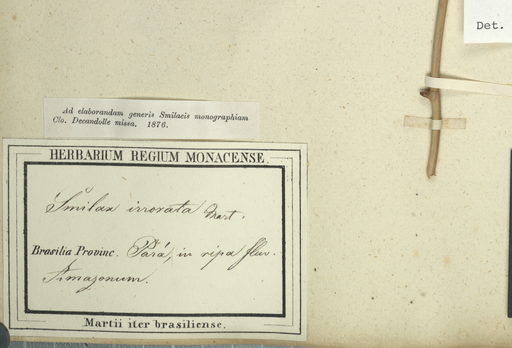 Det.
Ad elaborandam generis Smilacis monographiam
Clo. Decandolle missa. 1876.
HERBARIUM REGIUM MONACENSE.
Smilax irrorata Mart.
Brasilia Provinc. Pará, in ripa fluv.
Amazonum.
Martii iter brasiliense.